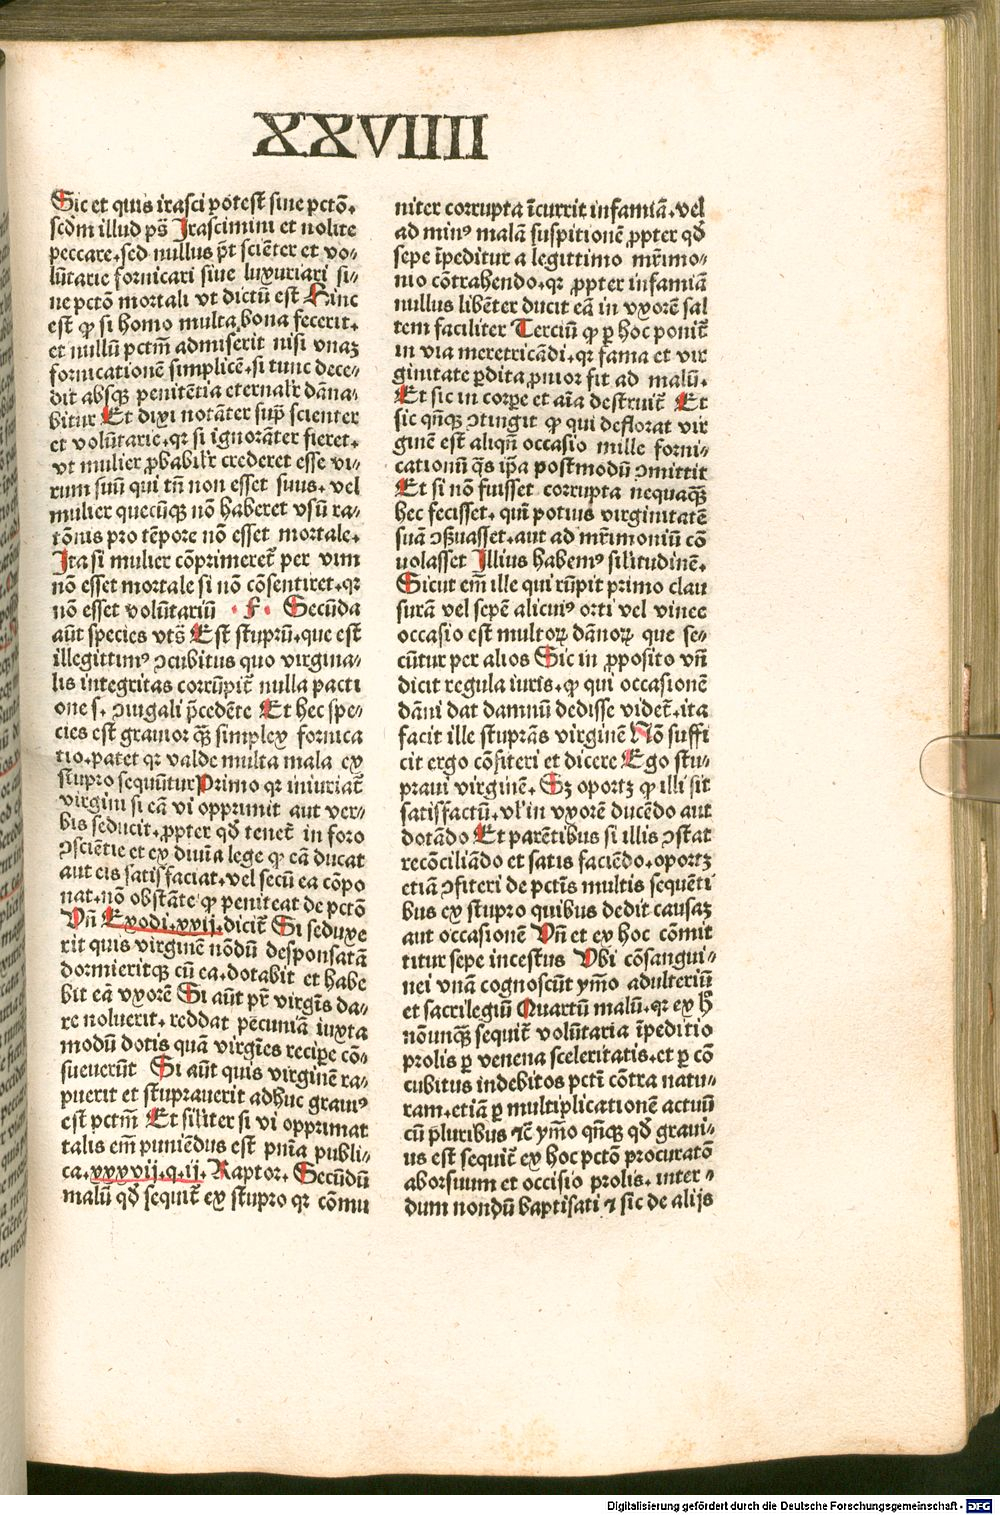 XXVIIII
Sic et quis irasci potest̄ sine pctō.
scd̄m illud ps̄ Irascimini et nolite
peccare. sed nullus pt̄ sciēter et vo⸗
lūtarie fornicari siue luxuriari si⸗
ne pctō mortali vt dictū est Hinc
est ꝙ si homo multa bona fecerit.
et nullū pctm̄ admiserit nisi vnaꝫ
fornicationē simplicē. si tunc dece⸗
dit absqꝫ penitētia eternalr̄ dāna⸗
bitur Et dixi notāter sup̄ scienter
et volūtarie. qꝛ si ignorāter fieret.
vt mulier ꝓbabilr̄ crederet esse vi⸗
rum suū qui tn̄ non esset suus. vel
mulier quecūqꝫ nō haberet vsū ra⸗
tōnis pro tēpore nō esset mortale.
Ita si mulier cōprimeret̄ per vim
nō esset mortale si nō cōsentiret. qꝛ
nō esset volūtariū . f . Secūda
aūt species vts̄ Est stuprū. que est
illegittimꝰ ɔcubitus quo virgina⸗
lis integritas corrūpit̄ nulla pacti
one s. ɔiugali p̄cedēte Et hec spe⸗
cies est grauior qꝫ̄ simplex fornica
tio. patet qꝛ valde multa mala ex
stupro sequūtur Primo qꝛ iniuriat̄
virgini si eā vi opprimit aut ver⸗
bis seducit. ꝓpter qd̄ tenet̄ in foro
ɔsciētie et ex diuīa lege ꝙ eā ducat
aut eis satisfaciat. vel secū ea cōpo
nat. nō obstāte ꝙ peniteat de pctō
Vn̄ Exodi. xxij. dicit̄ Si seduxe
rit quis virginē nōdū desponsatā
dormieritqꝫ cū ea. dotabit et habe
bit eā vxorē Si aūt pr̄ virgīs da⸗
re noluerit. reddat pecuniā iuxta
modū dotis quā virgīes recipe cō⸗
sueuerūt Si aūt quis virginē ra⸗
puerit et stuprauerit adhuc grauiꝰ
est pctm̄ Et siliter si vi opprimat
talis em̄ puniēdus est pn̄ia publi⸗
ca. xxxvij. q. ij. Raptor. Secūdū
malū qd̄ sequit̄ ex stupro qꝛ cōmu
niter corrupta īcurrit infamiā. vel
ad minꝰ malā suspitionē ꝓpter qd̄
sepe īpeditur a legittimo mr̄imo⸗
nio cōtrahendo. qꝛ ꝓpter infamiā
nullus libēter ducit eā in vxorē sal
tem faciliter Terciū ꝙ ꝑ hoc ponit̄
in via meretricādi. qꝛ fama et vir
ginitate ꝑdita ꝓnior fit ad malū.
Et sic in corpe et aīa destruit̄ Et
sic qn̄qꝫ ɔtingit ꝙ qui deflorat vir
ginē est aliqn̄ occasio mille forni⸗
cationū qs̄ ip̄a postmodū ɔmittit
Et si nō fuisset corrupta nequaqꝫ̄
hec fecisset. quī potius virginitatē
suā ɔßuasset. aut ad mr̄imoniū cō
uolasset Illius habemꝰ silitudinē.
Sicut em̄ ille qui rūpit primo clau
surā vel sepē alicuiꝰ orti vel vinee
occasio est multoꝝ dānoꝝ que se⸗
cūtur per alios Sic in ꝓposito vn̄
dicit regula iuris. ꝙ qui occasionē
dāni dat damnū dedisse videt̄. ita
facit ille stuprās virginē Nō suffi
cit ergo cōfiteri et dicere Ego stu⸗
praui virginē. Sꝫ oportꝫ ꝙ illi sit
satisfactū. vl' in vxorē ducēdo aut
dotādo Et parētibus si illis ɔstat
recōciliādo et satis faciēdo. oportꝫ
etiā ɔfiteri de pctīs multis sequēti
bus ex stupro quibus dedit causaꝫ
aut occasionē Vn̄ et ex hoc cōmit
titur sepe incestus Vbi cōsangui⸗
nei vnā cognoscūt ymo̅ adulteriū
et sacrilegiū Quartū malū. qꝛ ex ħ
nōunqꝫ̄ sequit̄ volūtaria īpeditio
prolis ꝑ venena sceleritatis. et ꝑ cō
cubitus indebitos pctī cōtra natu⸗
ram. etiā ꝑ multiplicationē actuū
cū pluribus ⁊c̄ ymo̅ qn̄qꝫ qd̄ graui⸗
us est sequit̄ ex hoc pctō procuratō
aborsuum et occisio prolis. inter⸗
dum nondū baptisati ⁊ sic de alijs
Digitalisierung gefördert durch die Deutsche Forschungsgemeinschaft - DFG